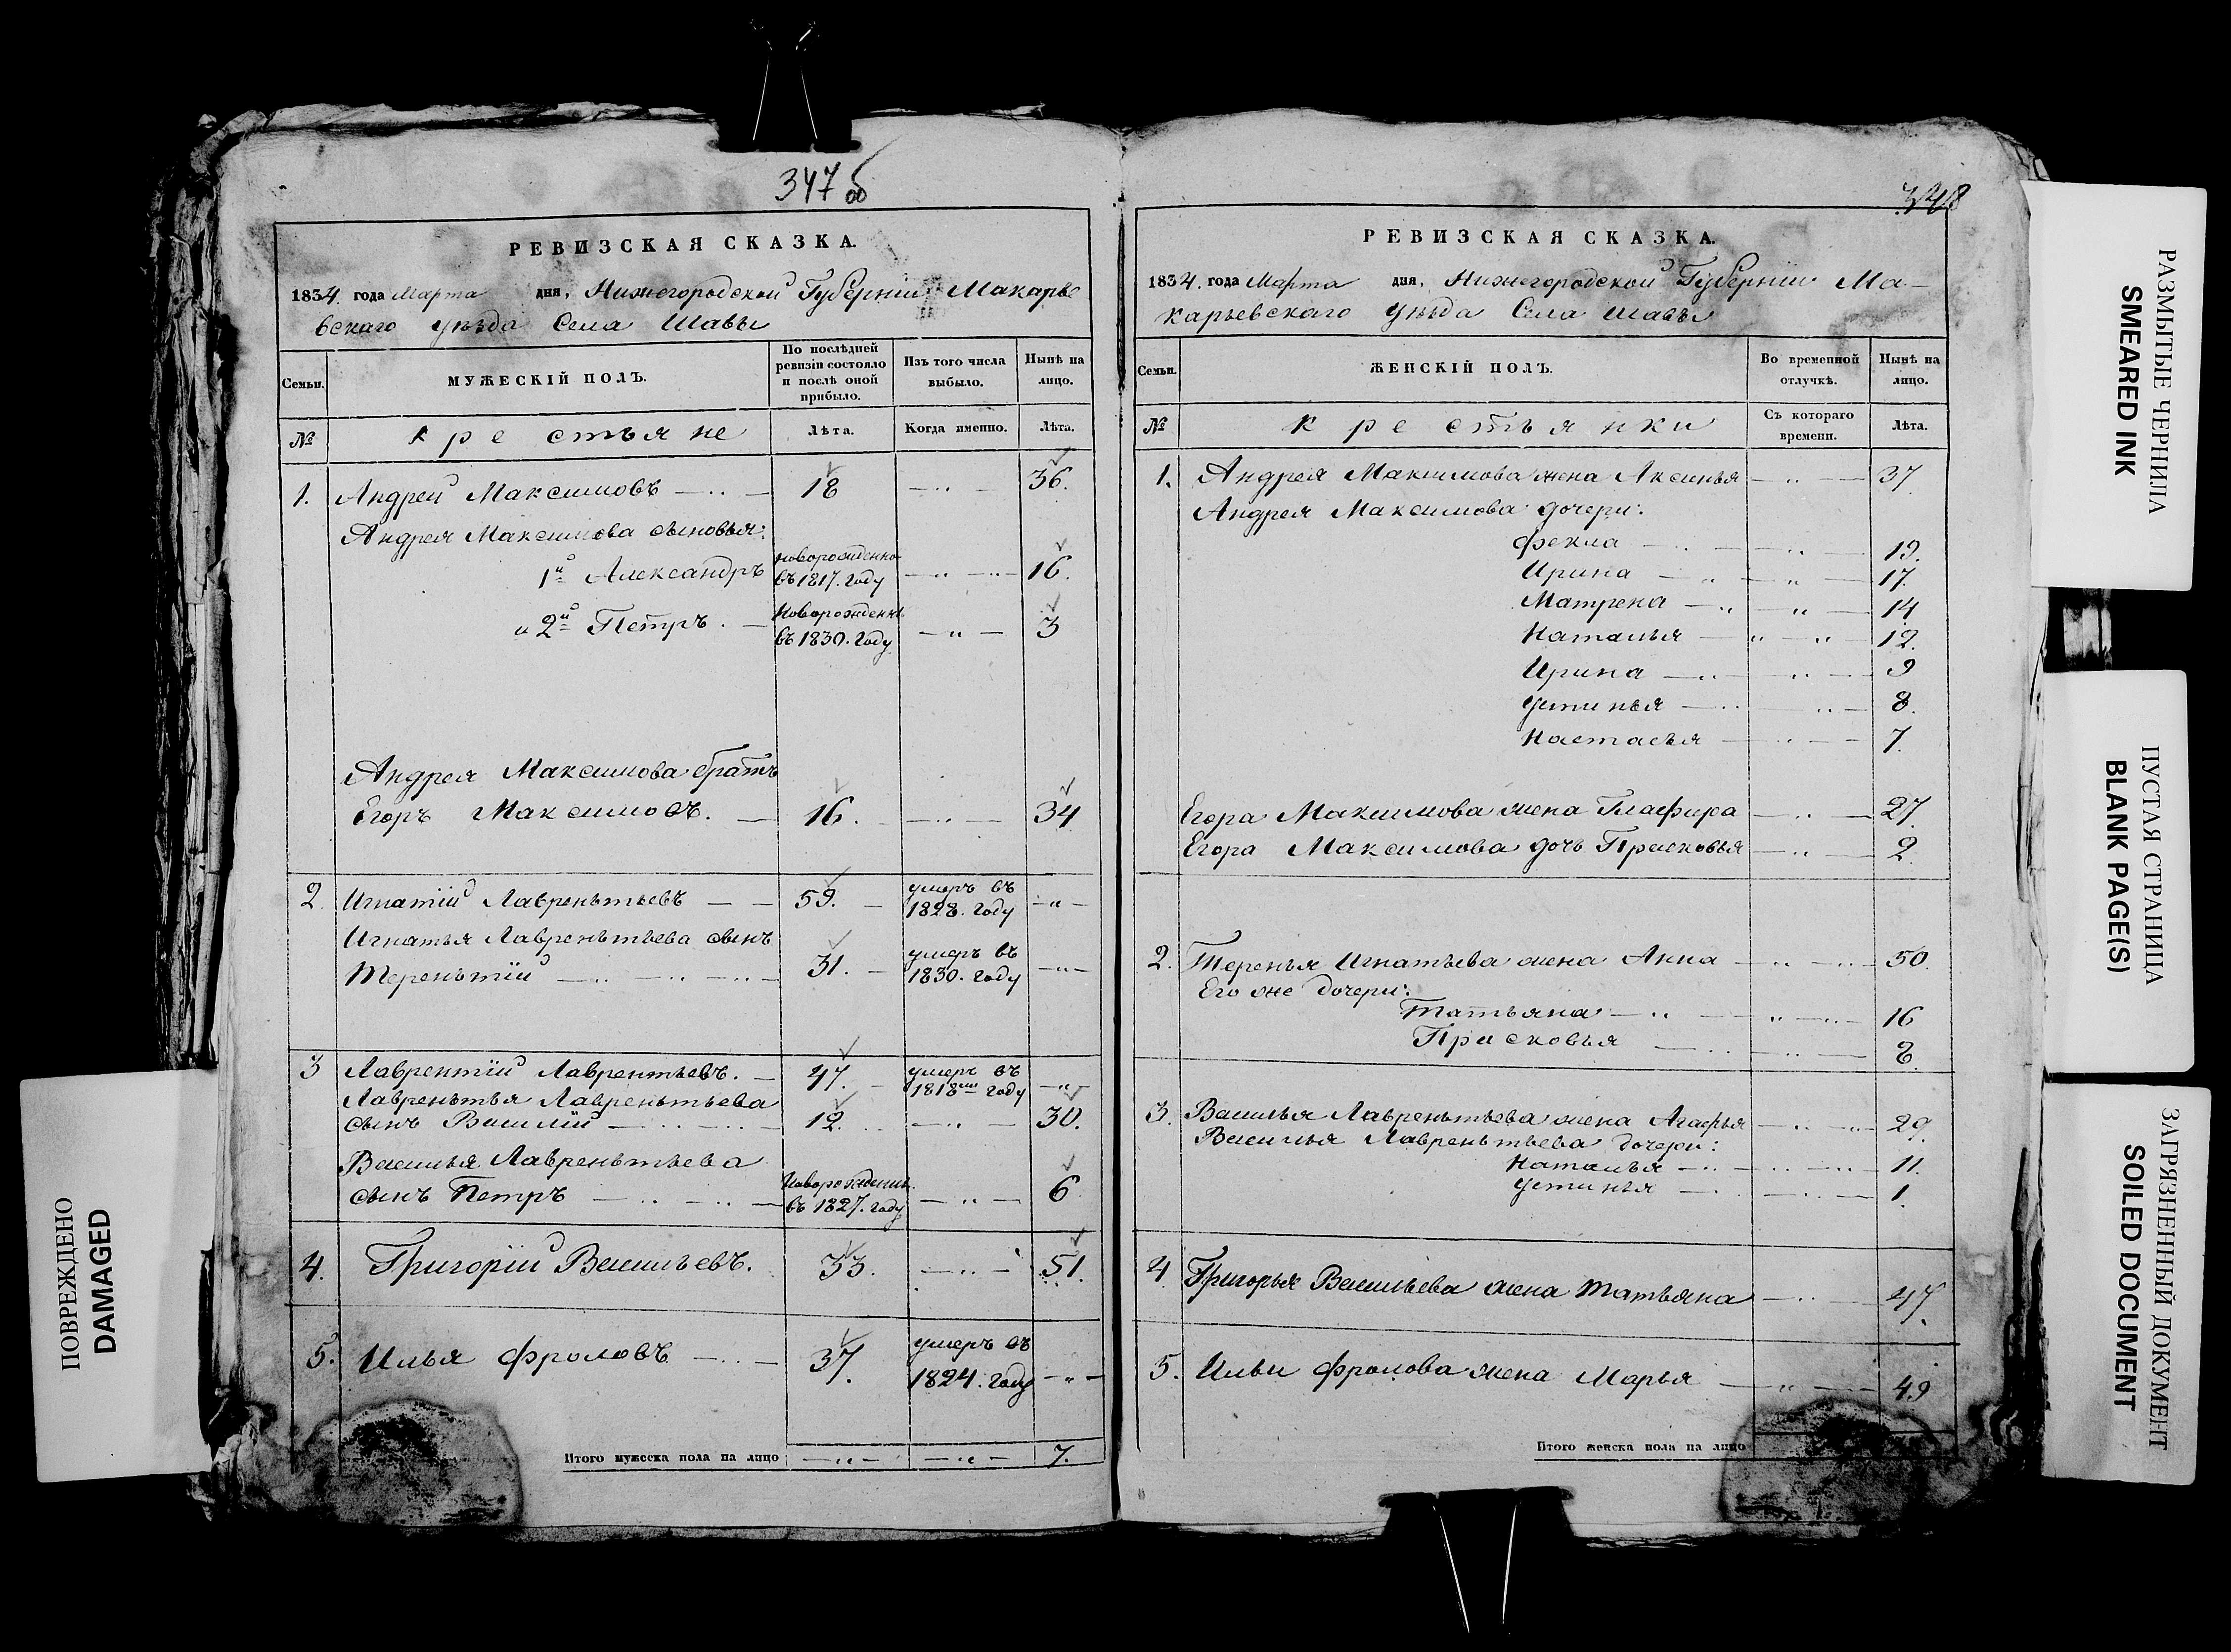 347 об
РЕВИЗСКАЯ СКАЗКА.
1834. года Марта дня, Нижегородской Губерніи Макарье
вскаго уѣзда Села Шавы
Семьи.
МУЖЕСКІЙ ПОЛЪ.
По послѣдней ревизіи состояло и послѣ оной прибыло.
Изъ того числа выбыло.
Нынѣ на лицо.
№
крестьяне
Лѣта.
Когда именно.
Лѣта.
1. Андрей Максимовъ 18 36.
Андрея Максимова сыновья:
1й Александръ новорожденно въ 1817. Году 16.
и 2й Петръ. Новорожденн въ 1830. Году 3
Андрея Максимова братъ
Егоръ Максимовъ. 16. 34
2. Игнатій Лавреньтьевъ 59. умеръ въ 1828. Году
Игнатья Лавреньтьева сынъ
Тереньтій 31. умеръ въ 1830. году
3 Лаврентій Лаврентьевъ. 47. умеръ въ 1818мъ году
Лавреньтья Лавреньтьева
сынъ Василій 12. 30.
Василья Лавреньтьева
сынъ Петръ Новорожденн. въ 1827. году 6
4. Григорій Васильевъ. 33. 51.
5. Илья Фроловъ 37. умеръ въ 1824. Году
Итого мужеска пола на лицо 7.
348
РЕВИЗСКАЯ СКАЗКА.
1834. года Марта дня, Нижегородской Губерніи Ма-
карьевскаго уѣзда Села Шавы
Семьи.
ЖЕНСКІЙ ПОЛЪ.
Во временной отлучкѣ.
Нынѣ на лицо.
№
крестьянки
Съ котораго времени.
Лѣта.
1. Андрея Максимова жена Аксинья 37
Андрея Максимова дочери:
Фекла 19.
Ирина 17.
Матрена 14
Наталья 12.
Ирина 9
Устинья 8.
Настасья 7.
Егора Максимова жена Глафира 27.
Егора Максимова дочь Прасковья 2.
2. Теренья Игнатьева жена Анна 50.
Его же дочери:
Татьяна 16
Прасковья 8.
3. Василья Лавреньтьева жена Агафья 29.
Василья Лавреньтьева дочери:
Наталья 11.
Устинья 1.
4 Григорья Васильева жена Татьяна 47.
5. Ильи Фролова жена Марья 49
Итого женска пола на лицо
РАЗМЫТЫЕ ЧЕРНИЛА
SMEARED INK
ПУСТАЯ СТРАНИЦА
BLANK PAGE(S)
ЗАГРЯЗНЕННЫЙ ДОКУМЕНТ
SOILED DOCUMENT
ПОВРЕЖДЕНО
DAMAGED